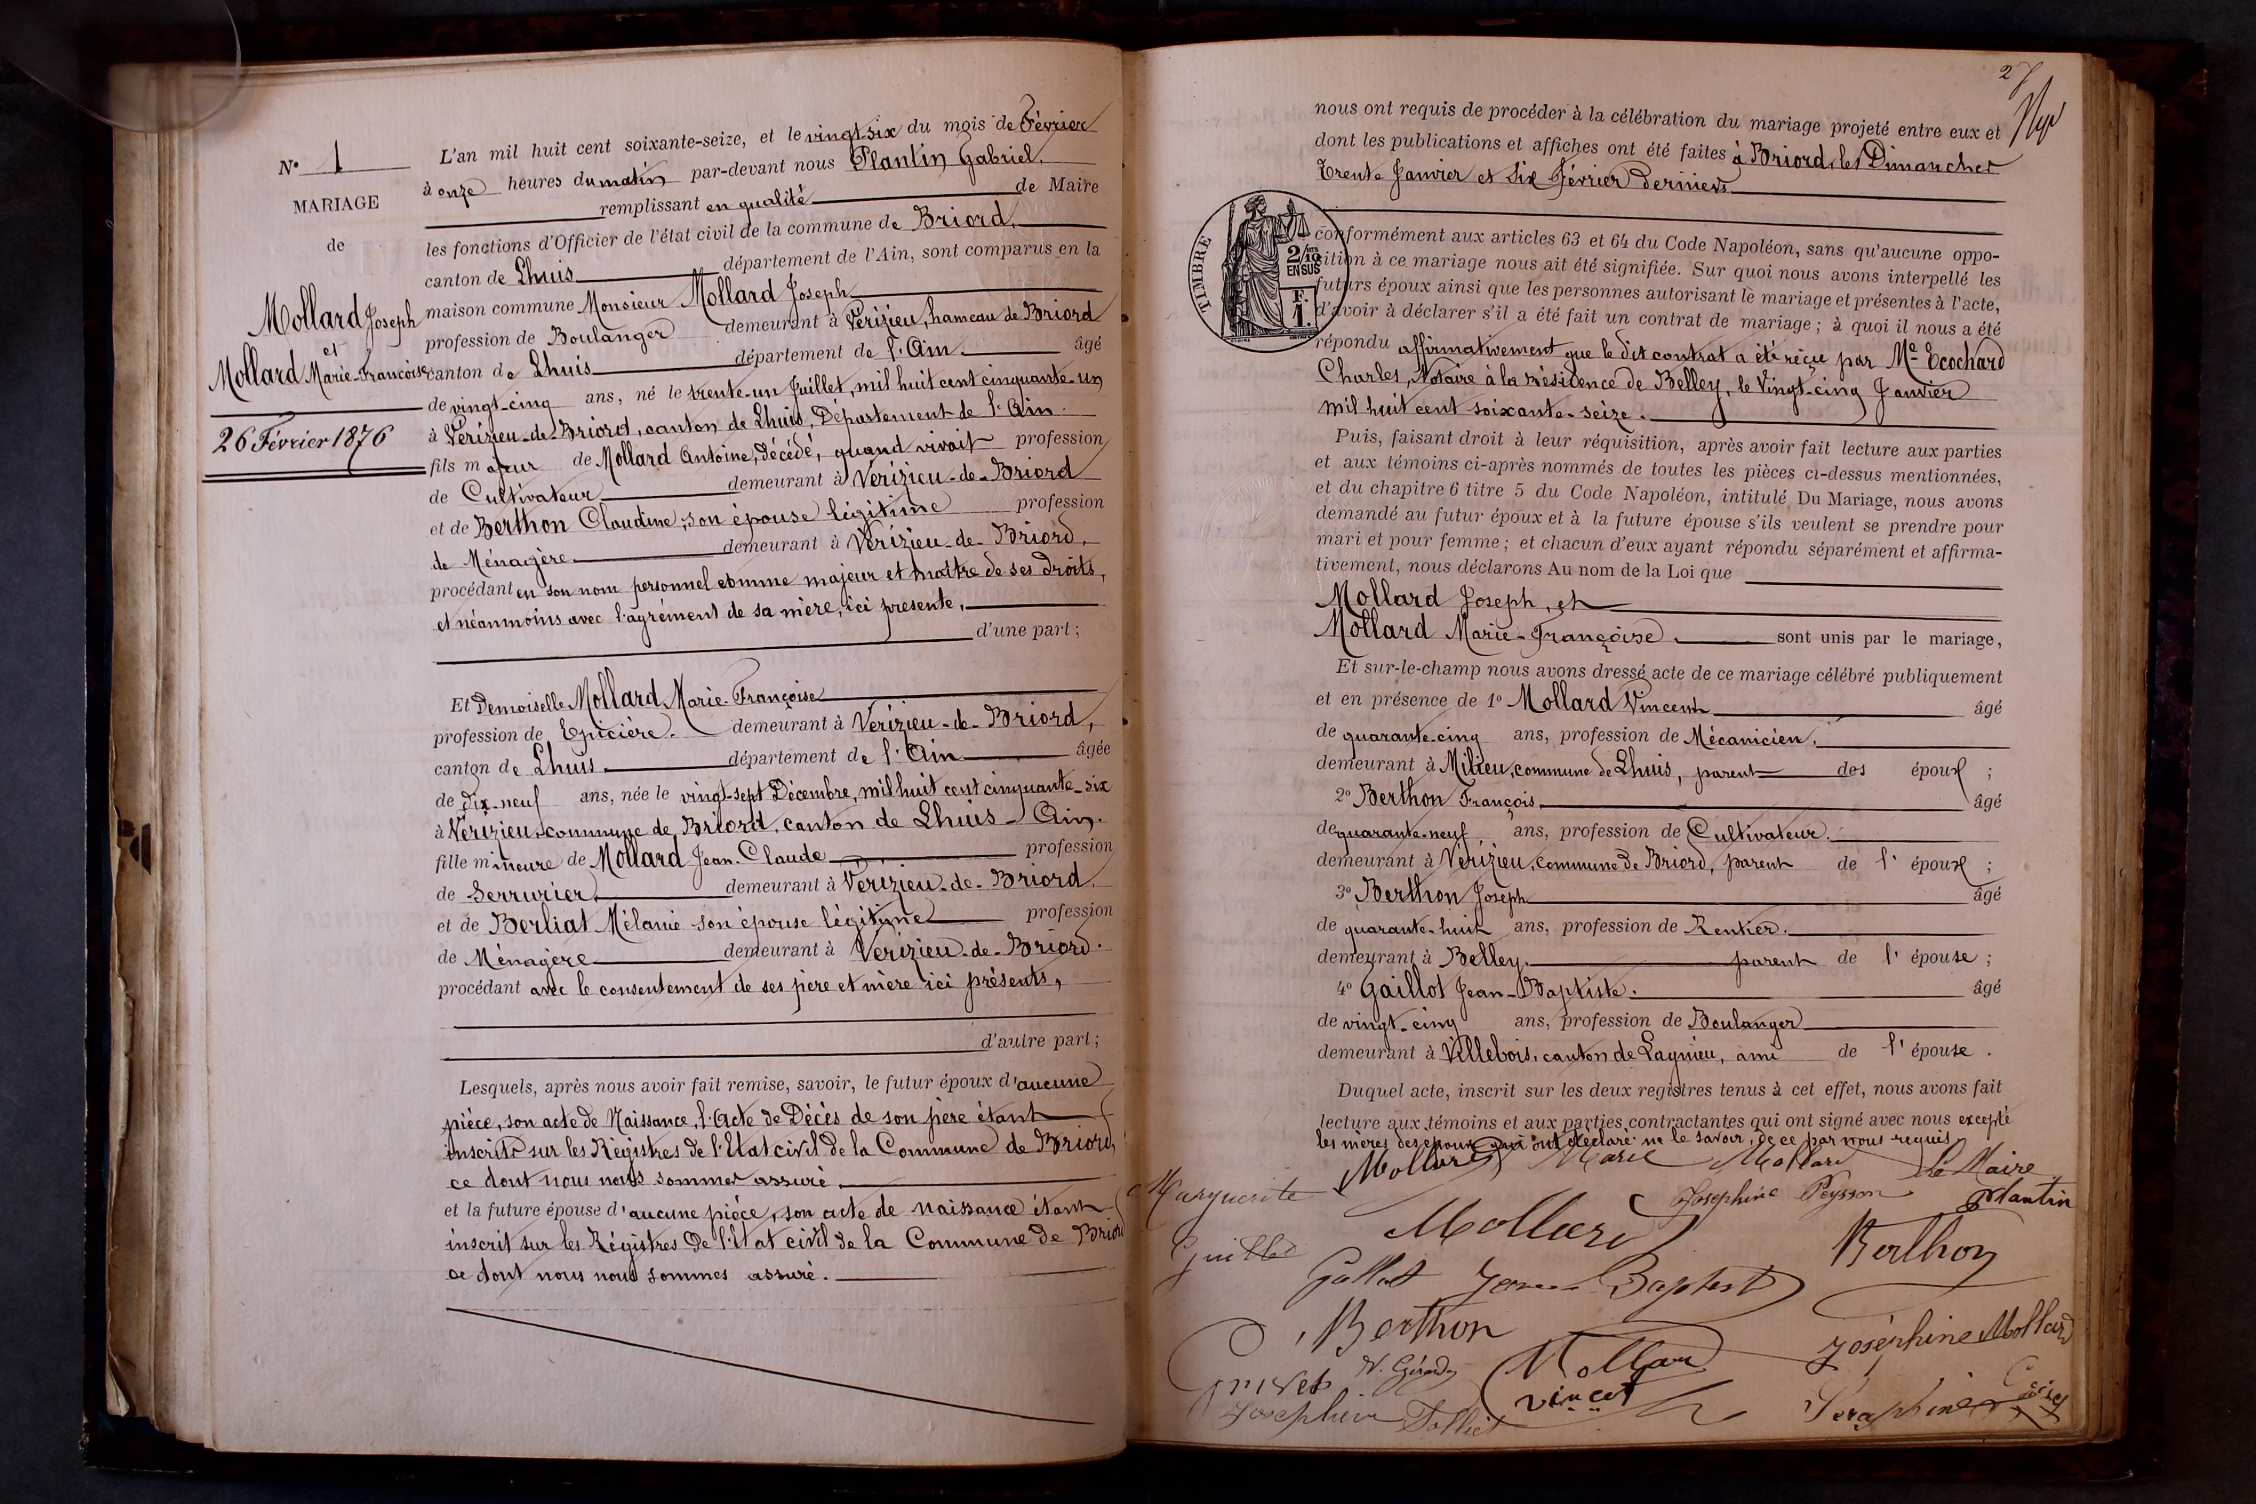 N° 1
MARIAGE
de
Mollard Joseph
et
Mollard Marie-Francoise
26 Février 1876
L'an mil huit cent soixante-seize, et le vingt-six du mois de Février
à onze heures du matin par-devant nous Plantin Gabriel,
remplissant en qualité de Maire
les fonctions d'Officier de l'état civil de la commune de Briord,
canton de Lhuis département de l'Ain, sont comparus en la
maison commune Monsieur Mollard Joseph
profession de Boulanger demeurant à Verizieu, hameau de Briord
canton de Lhuis département de l'Ain. âgé
de vingt-cinq ans, né le trente-un Juillet, mil huit cent cinquante-un
à Verizieu-de-Briord, canton de Lhuis, Département de l'Ain.
fils majeur de Mollard Antoine, décédé, quand vivait profession
de Cultivateur demeurant à Verizieu-de-Briord
et de Berthon Claudine, son épouse légitime profession
de Ménagère demeurant à Verizieu-de-Briord,
procédant en son nom personnel comme majeur et maître de ses droits,
et néanmoins avec l'agrément de sa mère, ici présente,
d'une part;
Et Demoiselle Mollard Marie-Françoise
profession de Epicière. demeurant à Verizieu-de-Briord,
canton de Lhuis. département de l'Ain âgée
de dix-neuf ans, née le vingt-sept Décembre, mil huit cent cinquante-six
à Verizieu, commune de Briord, canton de Lhuis - Ain.
fille mineure de Mollard Jean-Claude profession
de Serrurier demeurant à Verizieu-de-Briord,
et de Berliat Mélanie son épouse légitime profession
de Ménagère demeurant à Verizieu-de-Briord.
procédant avec le consentement de ses père et mère ici présents,
d'autre part;
Lesquels, après nous avoir fait remise, savoir, le futur époux d'aucune
pièce, son acte de Naissance, l'Acte de Décès de son père étant
inscrits sur les Régistres de l'Etat civil de la Commune de Briord,
ce dont nous nous sommes assuré.
et la future épouse d'aucune pièce, son acte de naissance étant
inscrit sur les Régistres de l'Etat civil de la Commune de Briord
ce dont nous nous sommes assuré.
27
nous ont requis de procéder à la célébration du mariage projeté entre eux et
dont les publications et affiches ont été faites à Briord, les Dimanches
Trente Janvier et Six Février derniers
TIMBRE
2/10
EN SUS
F.
1.
conformément aux articles 63 et 64 du Code Napoléon, sans qu'aucune oppo-
sition à ce mariage nous ait été signifiée. Sur quoi nous avons interpellé les
futurs époux ainsi que les personnes autorisant le mariage et présentes à l'acte,
d'avoir à déclarer s'il a été fait un contrat de mariage; à quoi il nous a été
répondu affirmativement que le dit contrat a été reçu par Me Ecochard
Charles, Notaire à la résidence de Belley, le Vingt-cinq Janvier
mil huit cent soixante-seize.
Puis, faisant droit à leur réquisition, après avoir fait lecture aux parties
et aux témoins ci-après nommés de toutes les pièces ci-dessus mentionnées,
et du chapitre 6 titre 5 du Code Napoléon, intitulé Du Mariage, nous avons
demandé au futur époux et à la future épouse s'ils veulent se prendre pour
mari et pour femme; et chacun d'eux ayant répondu séparément et affirma-
tivement, nous déclarons Au nom de la Loi que
Mollard Joseph, et
Mollard Marie-Françoise. sont unis par le mariage,
Et sur-le-champ nous avons dressé acte de ce mariage célébré publiquement
et en présence de 1° Mollard Vincent âgé
de quarante-cinq ans, profession de Mécanicien.
demeurant à Milieu, commune de Lhuis, parent des époux ;
2° Berthon François, âgé
de quarante-neuf ans, profession de Cultivateur.
demeurant à Verizieu, commune de Briord, parent de l'époux ;
3° Berthon Joseph âgé
de quarante-huit ans, profession de Rentier.
demeurant à Belley. parent de l'épouse ;
4° Gaillot Jean-Baptiste. âgé
de vingt-cinq ans, profession de Boulanger
demeurant à Villebois, canton de Lagnieu, ami de l'épouse.
Duquel acte, inscrit sur les deux registres tenus à cet effet, nous avons fait
lecture aux témoins et aux parties contractantes qui ont signé avec nous excepté
les mères des époux qui ont déclaré ne le savoir, de ce par nous requis
Mollard Marie Mollard Le Maire
Marguerite Josephine Peysson Plantin
Mollard Berthon
Jean Baptist
Berthon Joséphine Mollard
Mollard
vincet
Josephine